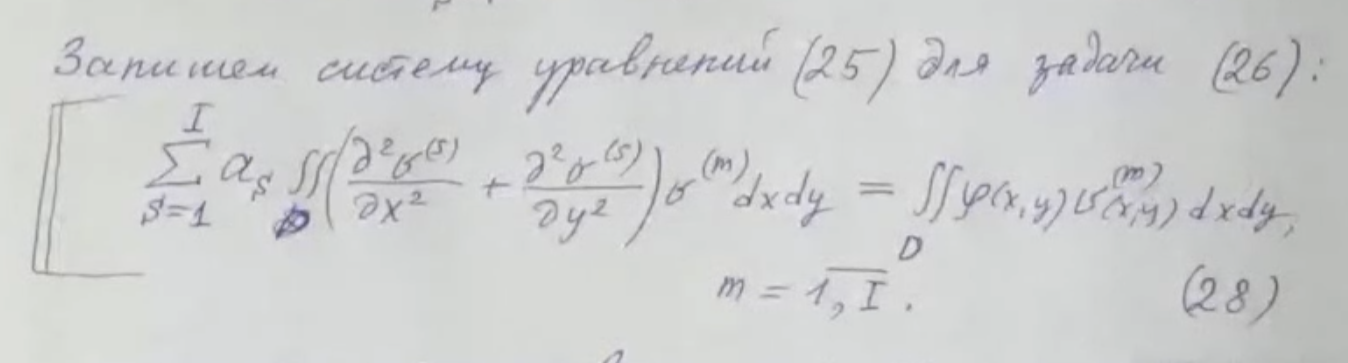 Запишем систему уравнений (25) для задачи (26):
$\sum_{s=1}^{I} a_s \iint_D \left( \frac{\partial^2 v^{(s)}}{\partial x^2} + \frac{\partial^2 v^{(s)}}{\partial y^2} \right) v^{(m)} dxdy = \iint_D \varphi(x,y) v^{(m)}(x,y) dxdy,$
$m = \overline{1, I}.$ (28)